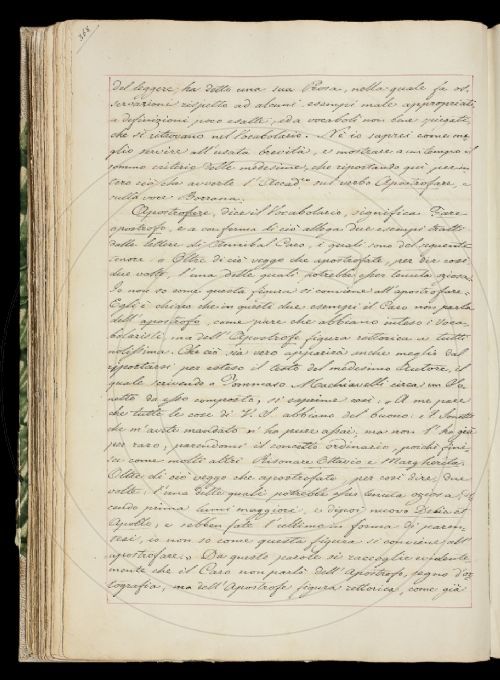 368
del leggere, ha detto una sua Prosa, nella quale fa os-
servazioni rispetto ad alcuni esempi male appropriati
a definizioni poco esatte, ed a vocaboli non ben spiegati,
che si ritrovano nel Vocabolario. Nè io saprei come me-
glio servire all'usata brevità, e mostrare a un tempo il
sommo criterio delle medesime, che riportando qui per in-
tero ciò che avverte l'Accad.co sul verbo Apostrofare, e
sulla voce Borrana.
Apostrofare, dice il Vocabolario, significa Fare
apostrofo, e a conferma di ciò allega due esempi tratti
dalle lettere di Annibal Caro, i quali sono del seguente
tenore: " Oltre di ciò veggo che apostrofate, per dir così
due volte, l'una delle quali potrebbe esser tenuta oziosa.
Io non so come questa figura si conviene all'apostrofare.
Egli è chiaro che in questi due esempi il Caro non parla
dell'apostrofo, come pare che abbiano inteso i Voca-
bolaristi, ma dell'Apostrofe figura rettorica a tutti
notissima. Che ciò sia vero apparirà anche meglio dal
rapportarsi per esteso il testo del medesimo Autore, il
quale scrivendo a Tommaso Machiavelli circa un So-
netto da esso composto, si esprime così: " A me pare
che tutte le cose di V. S. abbiano del buono: il Sonetto
che m'avete mandato n'ha pure assai; ma non l'ho già
per raro, parendomi il concetto ordinario, poichè fini-
sce come molti altri Risonare Ottavio e Margherita.
Oltre di ciò veggo che apostrofate, per così dire, due
volte; l'una delle quali potrebbe esser tenuta oziosa, di-
cendo prima lumi maggiori, e dipoi nuovo
Apollo, e sebben fate l'ultima in forma di paren-
tesi, io non so come questa figura si conviene all'
apostrofare. " Da queste parole si raccoglie evidente-
mente che il Caro non parla dell'Apostrofo, segno d'or-
tografia, ma dell'Apostrofe figura rettorica, come già